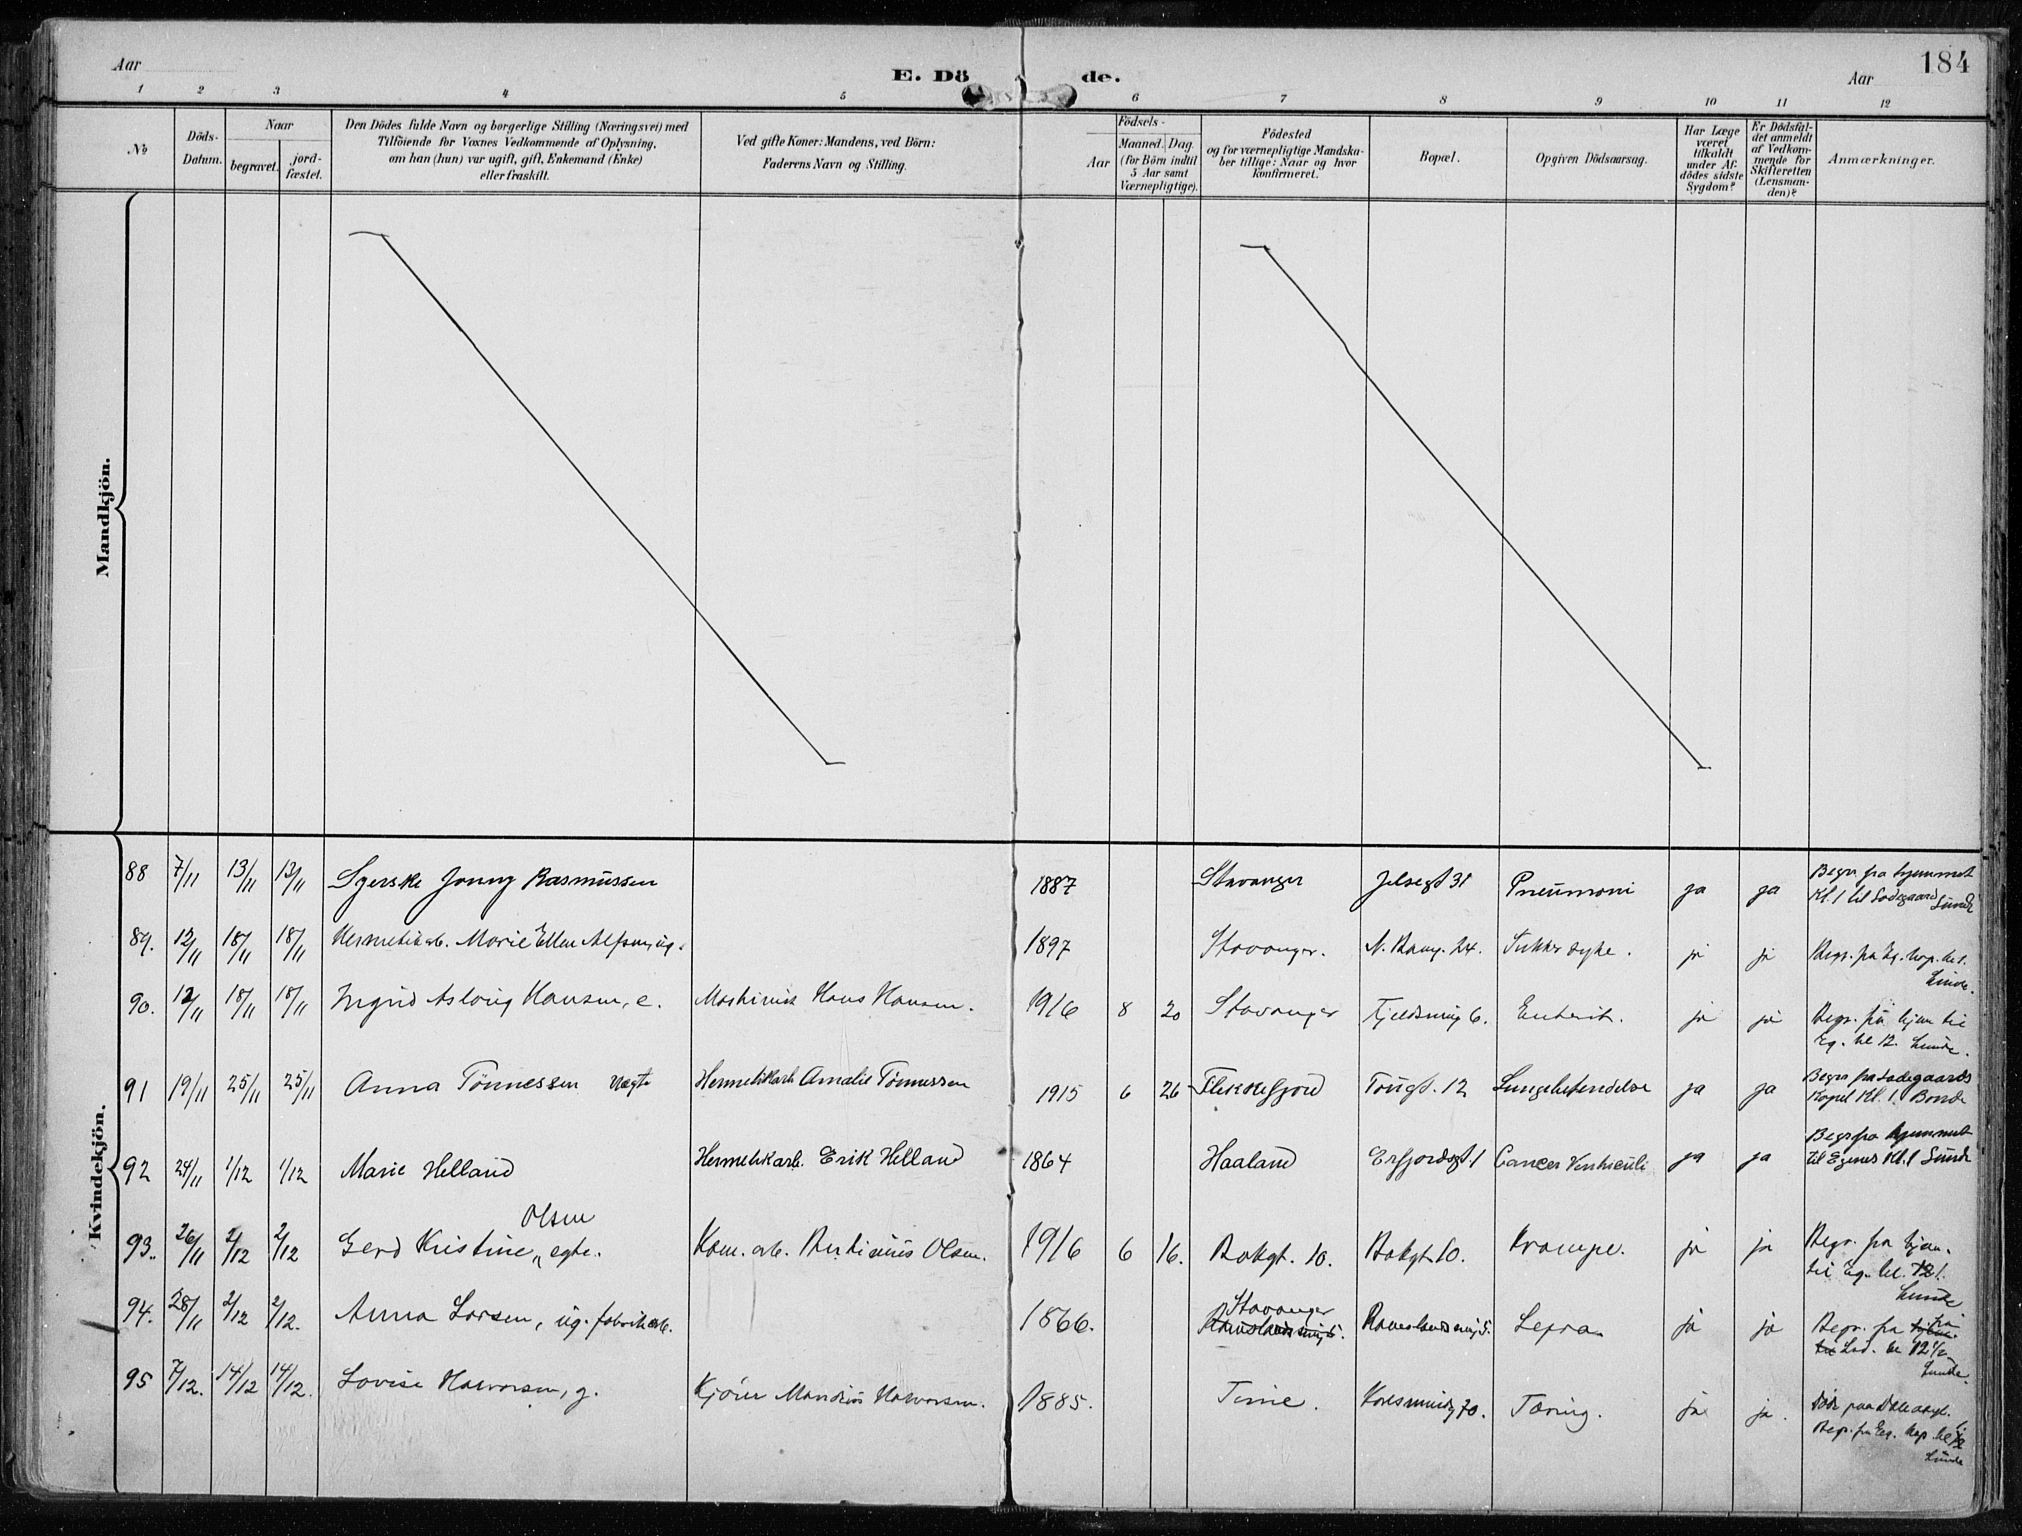 184
Aar
E. Dö de.
Aar
1 2 3 4 5 6 7 8 9 10 11 12
No
Döds-
Datum.
Naar
begravet.
jord-
fæstet.
Den Dödes fulde Navn og borgerlige Stilling (Næringsvei) med
Tilföiende for Voxnes Vedkommende af Oplysning,
om han (hun) var ugift, gift, Enkemand (Enke)
eller fraskilt.
Ved gifte Koner: Mandens, ved Börn:
Faderens Navn og Stilling.
Födsels-
Aar
Maaned. Dag.
(for Börn indtil
5 Aar samt
Værnepligtige).
Födested
og for værnepligtige Mandska-
ber tillige: Naar og hvor
konfirmeret.
Bopæl.
Opgiven Dödsaarsag.
Har Læge
været
tilkaldt
under Af-
dödes sidste
Sygdom?
Er Dödsfal-
det anmeldt
af Vedkom-
mende for
Skifteretten
(Lensman-
den)?
Anmærkninger.
Mandkjön.
Kvindekjön.
88 7/11 13/11 13/11 Syerske Jonny Rasmussen 1887 Stavanger Jelsegt 31 Pneumoni ja ja Begr fra hjemmet
Kl. 1 til Ladegaard Lunde
89. 12/11 18/11 18/11 Hermetikarb. Marie Ellen ug. 1897 Stavanger. 24. Sukkersyke. ja ja Begr. fra Eg. kap. kl. 1.
Lunde.
90. 12/11 18/11 18/11 Ingrid Aslaug Hansen, e. Maskinist Hans Hansen. 1916 8 20 Stavanger Fjeldsmug 6. Enterit. ja ja Begr. fra hjem til
Eg. kl 12. Lunde.
91 19/11 25/11 25/11 Anna Tönnessen uegte Hermetikkarb Amalie Tönnessen 1915 6 26 Flekkefjord Tougt. 12 Lungebetendelse ja ja Begr fra Ladegaards
Kapel Kl. 1. Bonde
92 24/11 1/12 1/12 Marie Helland Hermetikkarb. Erik Helland 1864 Haaland Erfjordsgt 1 Cancer Ventriculi ja ja Begr fra hjemmet
til Egenes Kl. 1 Lunde
Olsen
93. 26/11 2/12 2/12 Gerd Kristine, egte. Kom. arb. Olsen. 1916 6 16. Bakgt. 10. Bakgt 10. Krampe. ja ja Begr. fra hjem.
til Eg. kl. 1.
Lunde
94. 28/11 2/12 2/12. Anna Larsen, ug. fabrikarb. 1866. Stavanger
Ramslandsmug 5. Ramslandsmug 5. Lepra ja ja Begr. fra
Lad. kl 12 1/2
Lunde.
95 7/12. 14/12 14/12. Lovise Halvorsen, g. Kjörer Halvorsen. 1885. Time. 70. Tæring. ja ja. Död paa
Begr. fra Eg. kap. kl
Lunde